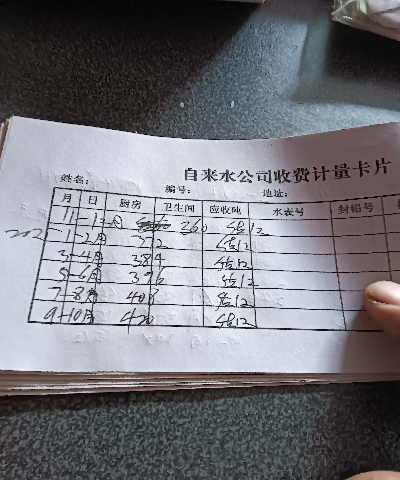 自来水公司收费计量卡片
姓名： 编号： 地址：
月 日 厨房 卫生间 应收吨 水表号 封铅号
11-12月 360 估12
202 1-2月 372 估12
3-4月 384 估12
5-6月 396 估12
7-8月 408 估12
9-10月 420 估12